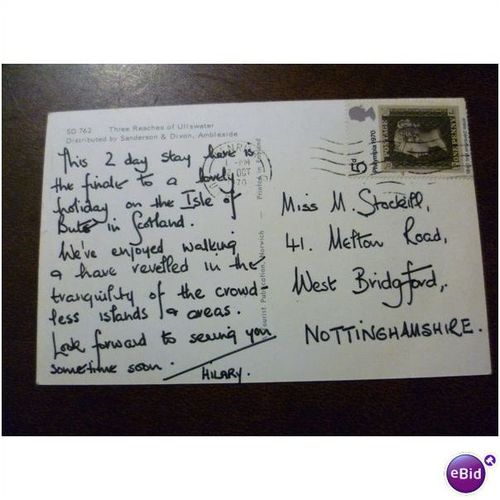 SD 762 Three Reaches of Ullswater
Distributed by Sanderson & Dixon, Ambleside
This 2 day stay here is
the finale to a lovely
holiday on the Isle of
Bute in Scotland.
We've enjoyed walking
& have revelled in the
tranquility of the crowd-
less islands & areas.
Look forward to seeing you
sometime soon.
HILARY.
Tourist Publication, Norwich - Printed in Ireland
PM
OCT
70
5d
Philympia 1970
POSTAGE
ONE PENNY
Miss M. Stockill,
41. Melton Road,
West Bridgford,
NOTTINGHAMSHIRE.
eBid